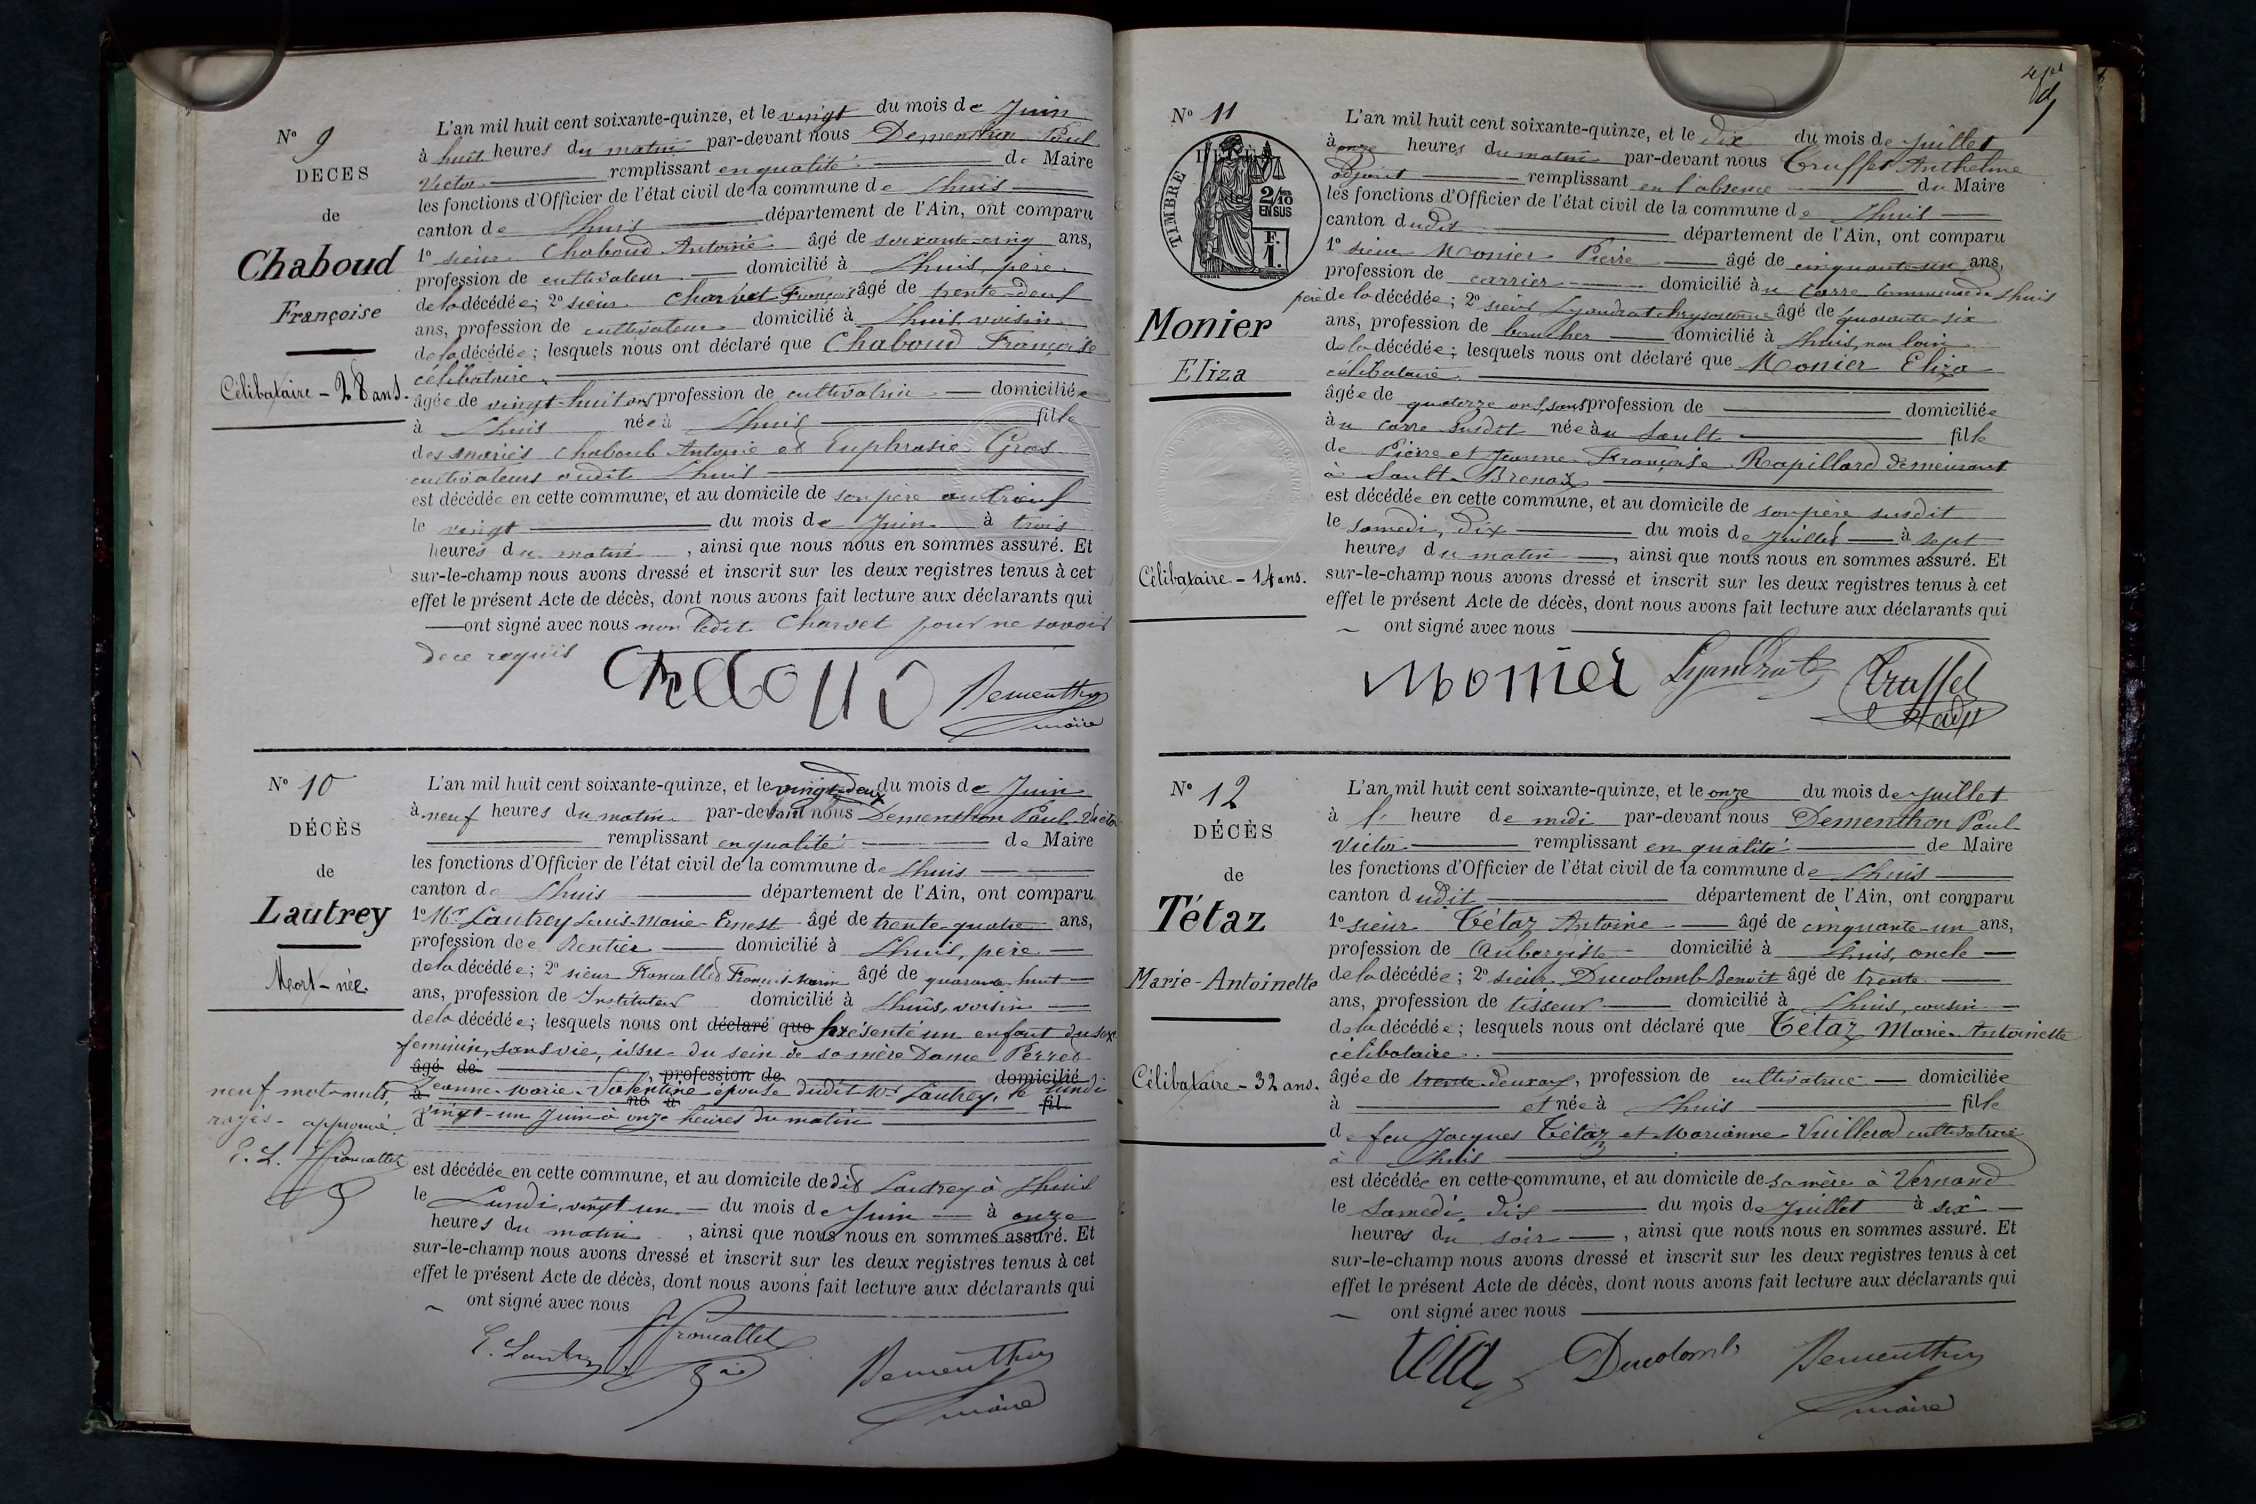 N° 9
DÉCÈS
de
Chaboud
Françoise
Célibataire - 28 ans.
L'an mil huit cent soixante-quinze, et le vingt du mois de Juin
à huit heures du matin par-devant nous Dementhon Paul
Victor remplissant en qualité de Maire
les fonctions d'Officier de l'état civil de la commune de Lhuis
canton de Lhuis département de l'Ain, ont comparu
1° sieur Chaboud Antoine âgé de soixante-cinq ans,
profession de cultivateur domicilié à Lhuis, père
de la décédée; 2° sieur Charvet François âgé de trente-deux
ans, profession de cultivateur domicilié à Lhuis voisin
de la décédée; lesquels nous ont déclaré que Chaboud Françoise
célibataire
âgée de vingt-huit ans profession de cultivatrice domiciliée
à Lhuis née à Lhuis fille
des mariés Chaboud Antoine et Euphrasie Gros
cultivateurs audit Lhuis
est décédée en cette commune, et au domicile de son père
le vingt du mois de Juin à trois
heures du matin, ainsi que nous nous en sommes assuré. Et
sur-le-champ nous avons dressé et inscrit sur les deux registres tenus à cet
effet le présent Acte de décès, dont nous avons fait lecture aux déclarants qui
ont signé avec nous non ledit Charvet pour ne savoir
de ce requis
Chaboud Dementhon
maire
N° 10
DÉCÈS
de
Lautrey
Mort-née.
L'an mil huit cent soixante-quinze, et le vingt-deux du mois de Juin
à neuf heures du matin par-devant nous Dementhon Paul Victor
remplissant en qualité de Maire
les fonctions d'Officier de l'état civil de la commune de Lhuis
canton de Lhuis département de l'Ain, ont comparu
1° Mr Lautrey Louis-Marie-Ernest âgé de trente-quatre ans,
profession de Rentier domicilié à Lhuis, père
de la décédée; 2° sieur François Marin âgé de quarante huit
ans, profession de Instituteur domicilié à Lhuis, voisin
de la décédée; lesquels nous ont déclaré que présenté un enfant du sexe
féminin, sans vie, issu du sein de sa mère Dame Perret
âgé de profession de domicilié
Jeanne-Marie-Valentine épouse dudit Mr Lautrey, le lundi
à né à fil
vingt-un Juin à onze heures du matin
d
neuf mots nuls,
rayés approuvé
E. L.
est décédée en cette commune, et au domicile dudit Lautrey à Lhuis
le Lundi, vingt un du mois de Juin à onze
heures du matin, ainsi que nous nous en sommes assuré. Et
sur-le-champ nous avons dressé et inscrit sur les deux registres tenus à cet
effet le présent Acte de décès, dont nous avons fait lecture aux déclarants qui
ont signé avec nous
E. Lautrey
Dementhon
maire
N° 11
TIMBRE
2/10
EN SUS
F.
1.
Monier
Eliza
Célibataire - 14 ans.
L'an mil huit cent soixante-quinze, et le dix du mois de Juillet
à onze heures du matin par-devant nous Truffet Anthelme
adjoint remplissant en l'absence du Maire
les fonctions d'Officier de l'état civil de la commune de Lhuis
canton dudit département de l'Ain, ont comparu
1° sieur Monier Pierre âgé de cinquante-un ans,
profession de carrier domicilié à u Carre commune de Lhuis
père de la décédée; 2° sieur Lyaudrat Chrysostome âgé de quarante-six
ans, profession de boucher domicilié à Lhuis, non loin
de la décédée; lesquels nous ont déclaré que Monier Eliza
célibataire
âgée de quatorze ans, sans profession de domiciliée
à u Carre susdit née à u Sault fille
de Pierre et Jeanne Françoise Rapillard demeurant
à Sault-Brenaz
est décédée en cette commune, et au domicile de son père susdit
le samedi, dix du mois de Juillet à sept
heures du matin, ainsi que nous nous en sommes assuré. Et
sur-le-champ nous avons dressé et inscrit sur les deux registres tenus à cet
effet le présent Acte de décès, dont nous avons fait lecture aux déclarants qui
ont signé avec nous
Monier Lyaudrat Truffet
adjt
N° 12
DÉCÈS
de
Tétaz
Marie-Antoinette
Célibataire - 32 ans.
L'an mil huit cent soixante-quinze, et le onze du mois de Juillet
à 1 heure de midi par-devant nous Dementhon Paul
Victor remplissant en qualité de Maire
les fonctions d'Officier de l'état civil de la commune de Lhuis
canton dudit département de l'Ain, ont comparu
1° sieur Tétaz Antoine âgé de cinquante-un ans,
profession de Aubergiste domicilié à Lhuis, oncle
de la décédée; 2° sieur Ducolomb Benoît âgé de trente
ans, profession de tisseur domicilié à Lhuis, cousin
de la décédée; lesquels nous ont déclaré que Tétaz Marie-Antoinette
célibataire
âgée de trente-deux ans, profession de cultivatrice domiciliée
à et née à Lhuis fille
de feu Jacques Tétaz et Marianne Vuillerod cultivatrice
à Lhuis
est décédée en cette commune, et au domicile de sa mère à Vernand
le Samedi, dix du mois de Juillet à six
heures du soir, ainsi que nous nous en sommes assuré. Et
sur-le-champ nous avons dressé et inscrit sur les deux registres tenus à cet
effet le présent Acte de décès, dont nous avons fait lecture aux déclarants qui
ont signé avec nous
Tétaz Ducolomb Dementhon
maire